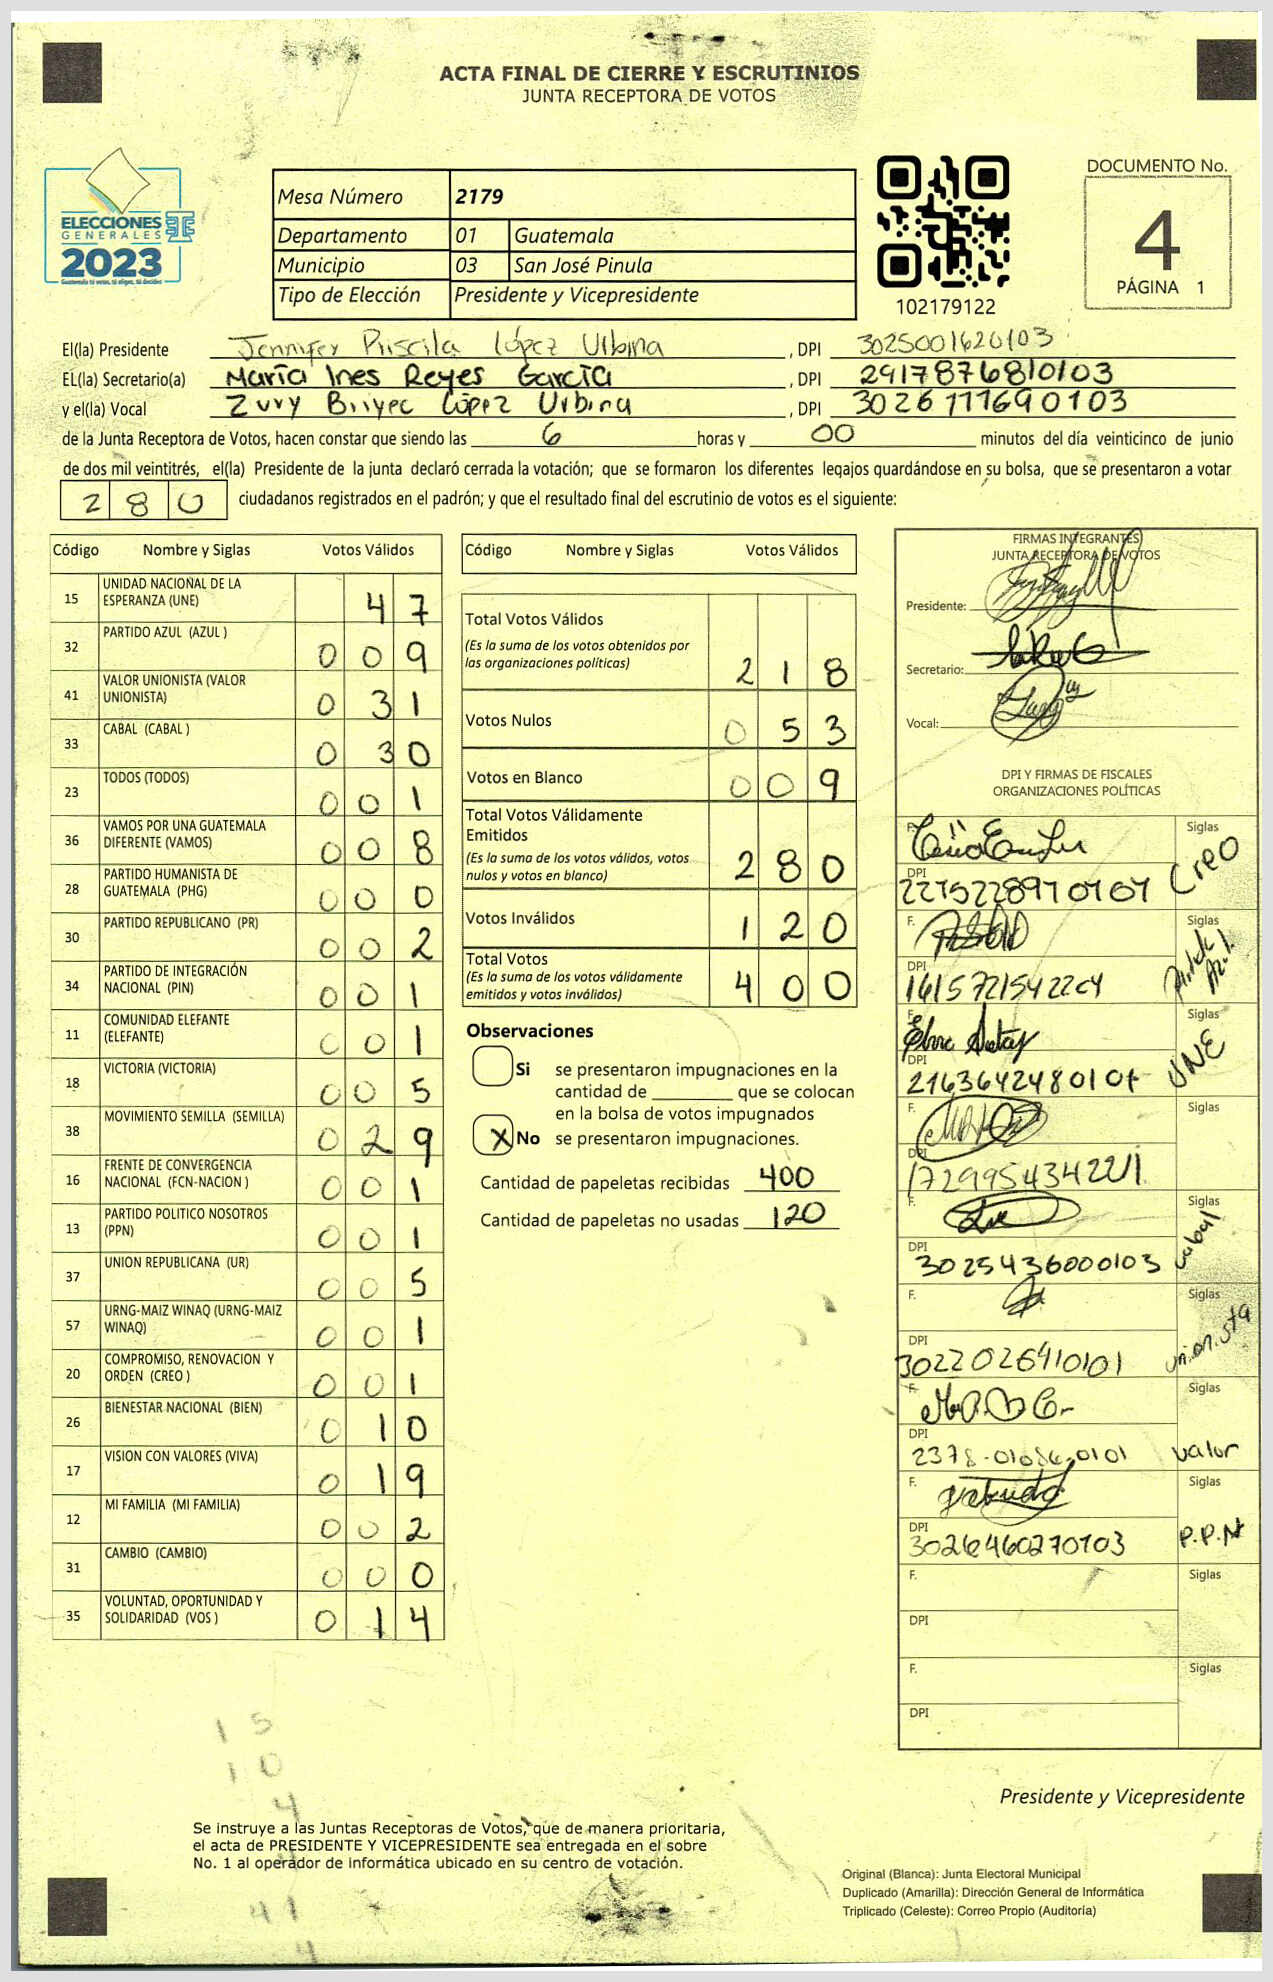 ACTA FINAL DE CIERRE Y ESCRUTINIOS
JUNTA RECEPTORA DE VOTOS
ELECCIONES
GENERALES
2023
Mesa Número 2179
Departamento 01 Guatemala
Municipio 03 San José Pinula
Tipo de Elección Presidente y Vicepresidente
102179122
DOCUMENTO No.
4
PÁGINA 1
El(la) Presidente Jennifer Priscila López Urbina , DPI 3025001620103
EL(la) Secretario(a) María Ines Reyes García , DPI 2917876810103
y el(la) Vocal Zury López Urbina , DPI 3026111690103
de la Junta Receptora de Votos, hacen constar que siendo las 6 horas y 00 minutos del día veinticinco de junio
de dos mil veintitrés, el(la) Presidente de la junta declaró cerrada la votación; que se formaron los diferentes legajos guardándose en su bolsa, que se presentaron a votar
280 ciudadanos registrados en el padrón; y que el resultado final del escrutinio de votos es el siguiente:
Código Nombre y Siglas Votos Válidos
15 UNIDAD NACIONAL DE LA ESPERANZA (UNE) 47
32 PARTIDO AZUL (AZUL ) 009
41 VALOR UNIONISTA (VALOR UNIONISTA) 031
33 CABAL (CABAL ) 030
23 TODOS (TODOS) 001
36 VAMOS POR UNA GUATEMALA DIFERENTE (VAMOS) 008
28 PARTIDO HUMANISTA DE GUATEMALA (PHG) 000
30 PARTIDO REPUBLICANO (PR) 002
34 PARTIDO DE INTEGRACIÓN NACIONAL (PIN) 001
11 COMUNIDAD ELEFANTE (ELEFANTE) 001
18 VICTORIA (VICTORIA) 005
38 MOVIMIENTO SEMILLA (SEMILLA) 029
16 FRENTE DE CONVERGENCIA NACIONAL (FCN-NACION ) 001
13 PARTIDO POLITICO NOSOTROS (PPN) 001
37 UNION REPUBLICANA (UR) 005
57 URNG-MAIZ WINAQ (URNG-MAIZ WINAQ) 001
20 COMPROMISO, RENOVACION Y ORDEN (CREO ) 001
26 BIENESTAR NACIONAL (BIEN) 010
17 VISION CON VALORES (VIVA) 019
12 MI FAMILIA (MI FAMILIA) 002
31 CAMBIO (CAMBIO) 000
35 VOLUNTAD, OPORTUNIDAD Y SOLIDARIDAD (VOS ) 014
Código Nombre y Siglas Votos Válidos
Total Votos Válidos
(Es la suma de los votos obtenidos por
las organizaciones políticas) 218
Votos Nulos 053
Votos en Blanco 009
Total Votos Válidamente
Emitidos
(Es la suma de los votos válidos, votos
nulos y votos en blanco) 280
Votos Inválidos 120
Total Votos
(Es la suma de los votos válidamente
emitidos y votos inválidos) 400
Observaciones
Si se presentaron impugnaciones en la
cantidad de ________ que se colocan
en la bolsa de votos impugnados
X No se presentaron impugnaciones.
Cantidad de papeletas recibidas 400
Cantidad de papeletas no usadas 120
FIRMAS INTEGRANTES
JUNTA RECEPTORA DE VOTOS
Presidente:
Secretario:
Vocal:
DPI Y FIRMAS DE FISCALES
ORGANIZACIONES POLÍTICAS
F. Siglas Creo
DPI
F. Siglas Azul
DPI 1615721542204
F. Siglas UNE
DPI 2163642480101
F. Siglas
DPI
F. Siglas
DPI 3025436000103
F. Siglas unionista
DPI 3022026910101
F. Siglas valor
DPI
F. Siglas P.P.N
DPI 3026460270103
F. Siglas
DPI
F. Siglas
DPI
15
10
4
41
4
Presidente y Vicepresidente
Se instruye a las Juntas Receptoras de Votos, que de manera prioritaria,
el acta de PRESIDENTE Y VICEPRESIDENTE sea entregada en el sobre
No. 1 al operador de informática ubicado en su centro de votación.
Original (Blanca): Junta Electoral Municipal
Duplicado (Amarilla): Dirección General de Informática
Triplicado (Celeste): Correo Propio (Auditoría)